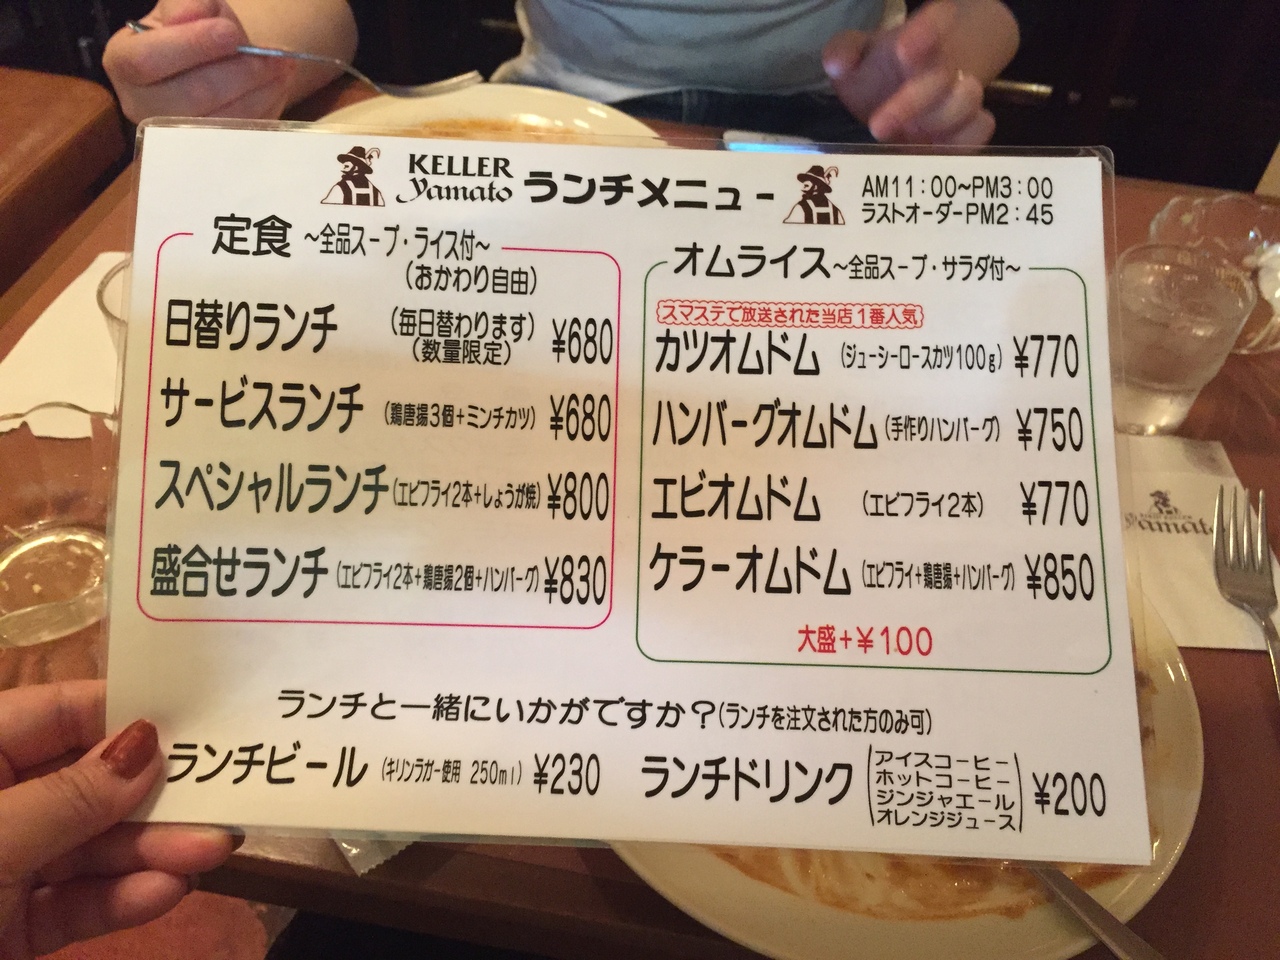 KELLER
yamato
ランチメニュー
AM11:00~PM3:00
ラストオーダーPM2:45
定食 ~全品スープ・ライス付~
(おかわり自由)
日替りランチ (毎日替わります) ¥680
(数量限定)
サービスランチ (鶏唐揚3個+ミンチカツ) ¥680
スペシャルランチ (エビフライ2本+しょうが焼) ¥800
盛合せランチ (エビフライ2本+鶏唐揚2個+ハンバーグ) ¥830
オムライス ~全品スープ・サラダ付~
スマステで放送された当店1番人気
カツオムドム (ジューシーロースカツ100g) ¥770
ハンバーグオムドム (手作りハンバーグ) ¥750
エビオムドム (エビフライ2本) ¥770
ケラーオムドム (エビフライ+鶏唐揚+ハンバーグ) ¥850
大盛+¥100
ランチと一緒にいかがですか?(ランチを注文された方のみ可)
ランチビール (キリンラガー使用 250ml) ¥230
ランチドリンク (アイスコーヒー
ホットコーヒー
ジンジャエール
オレンジジュース) ¥200
yamato